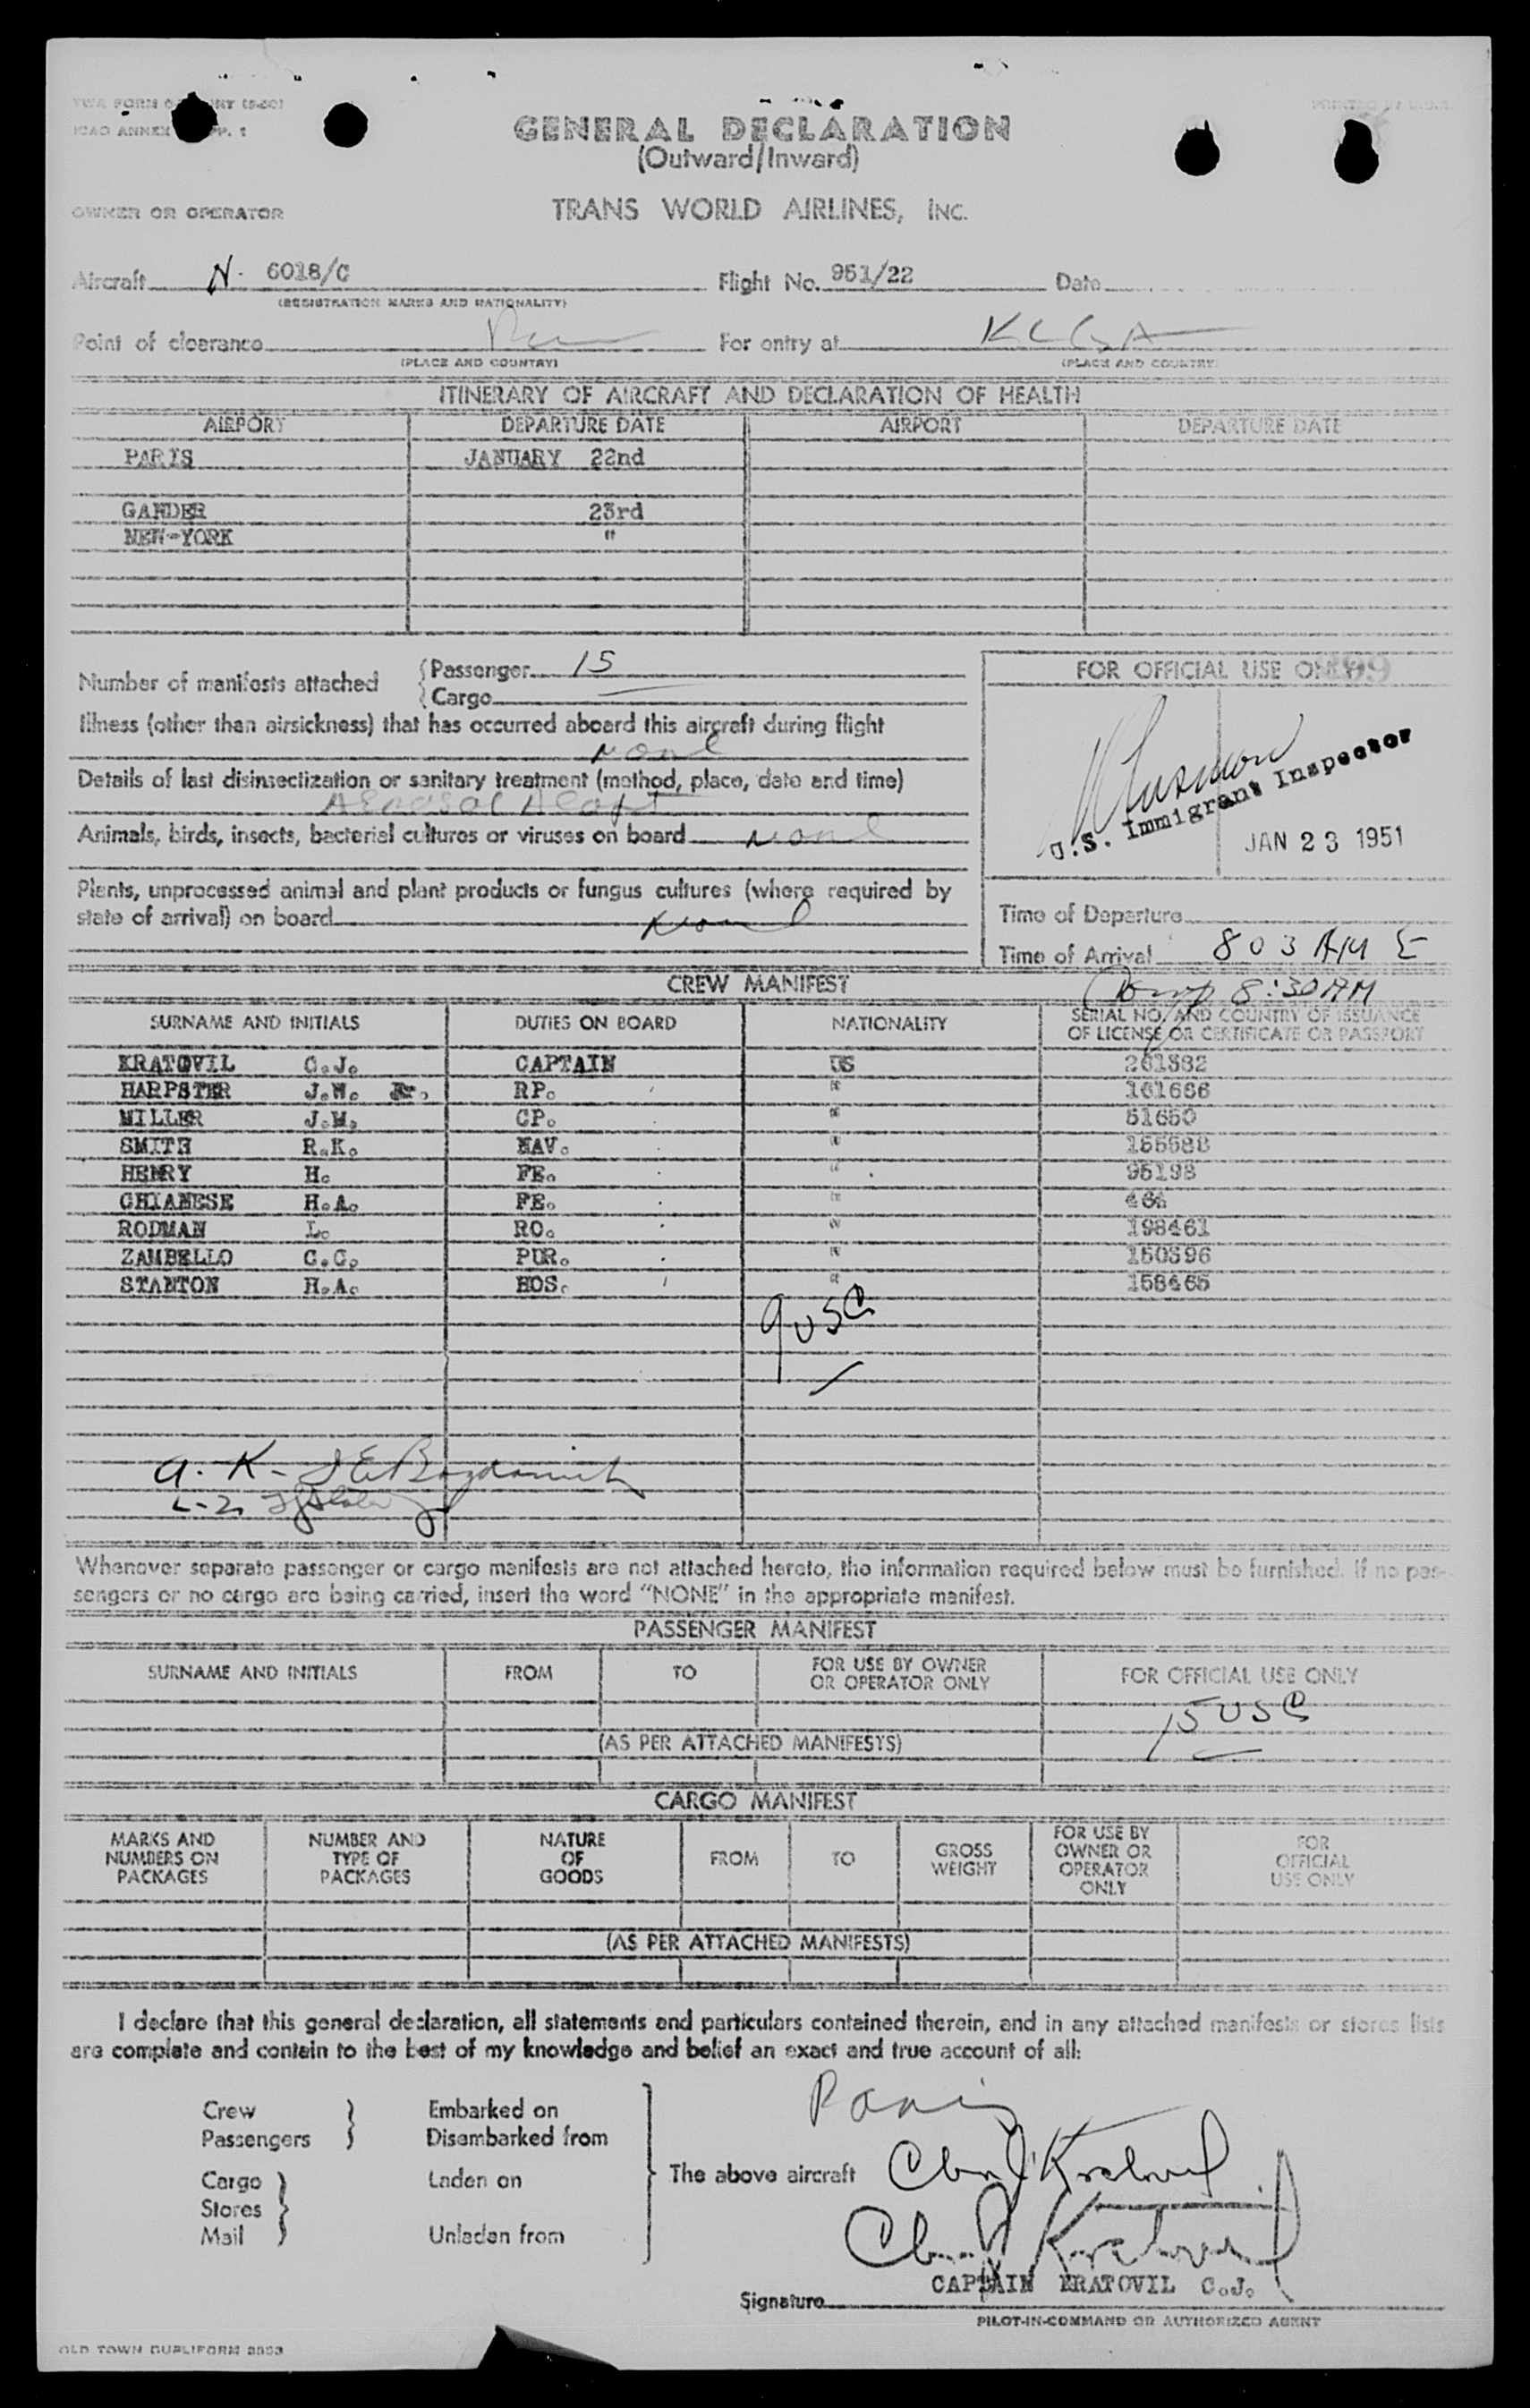 GENERAL DECLARATION
(Outward/Inward)
OWNER OR OPERATOR TRANS WORLD AIRLINES, INC.
Aircraft N. 6018/C Flight No. 951/22 Date
(REGISTRATION MARKS AND NATIONALITY)
Point of clearance For entry at
(PLACE AND COUNTRY) (PLACE AND COUNTRY)
ITINERARY OF AIRCRAFT AND DECLARATION OF HEALTH
AIRPORT DEPARTURE DATE AIRPORT DEPARTURE DATE
PARIS JANUARY 22nd
GANDER 23rd
NEW-YORK "
Number of manifests attached Passenger 15
Cargo —
FOR OFFICIAL USE ONLY
Illness (other than airsickness) that has occurred aboard this aircraft during flight
None
Details of last disinsectization or sanitary treatment (method, place, date and time)
Aerosol
Animals, birds, insects, bacterial cultures or viruses on board None
U.S. Immigrant Inspector
JAN 23 1951
Plants, unprocessed animal and plant products or fungus cultures (where required by
state of arrival) on board None
Time of Departure
Time of Arrival 803 AM E
8:30 AM
CREW MANIFEST
SURNAME AND INITIALS DUTIES ON BOARD NATIONALITY SERIAL NO. AND COUNTRY OF ISSUANCE
OF LICENSE OR CERTIFICATE OR PASSPORT
KRATOVIL C.J. CAPTAIN US
HARPSTER J.W. RP. " 101686
MILLER J.M. CP. " 51650
SMITH R.K. NAV. "
HENRY H. FE. " 95193
CHIANESE H.A. FE. "
RODMAN L. RO. " 198461
ZAMBELLO C.C. PUR. " 150396
STANTON H.A. HOS. " 158465
9 USC
Whenever separate passenger or cargo manifests are not attached hereto, the information required below must be furnished. If no pas-
sengers or no cargo are being carried, insert the word "NONE" in the appropriate manifest.
PASSENGER MANIFEST
SURNAME AND INITIALS FROM TO FOR USE BY OWNER
OR OPERATOR ONLY FOR OFFICIAL USE ONLY
15 USC
(AS PER ATTACHED MANIFESTS)
CARGO MANIFEST
MARKS AND
NUMBERS ON
PACKAGES NUMBER AND
TYPE OF
PACKAGES NATURE
OF
GOODS FROM TO GROSS
WEIGHT FOR USE BY
OWNER OR
OPERATOR
ONLY FOR
OFFICIAL
USE ONLY
(AS PER ATTACHED MANIFESTS)
I declare that this general declaration, all statements and particulars contained therein, and in any attached manifests or stores lists
are complete and contain to the best of my knowledge and belief an exact and true account of all:
Paris
Crew Embarked on
Passengers Disembarked from
Cargo Laden on The above aircraft
Stores
Mail Unladen from
CAPTAIN KRATOVIL C.J.
Signature
PILOT-IN-COMMAND OR AUTHORIZED AGENT
OLD TOWN DUPLIFORM